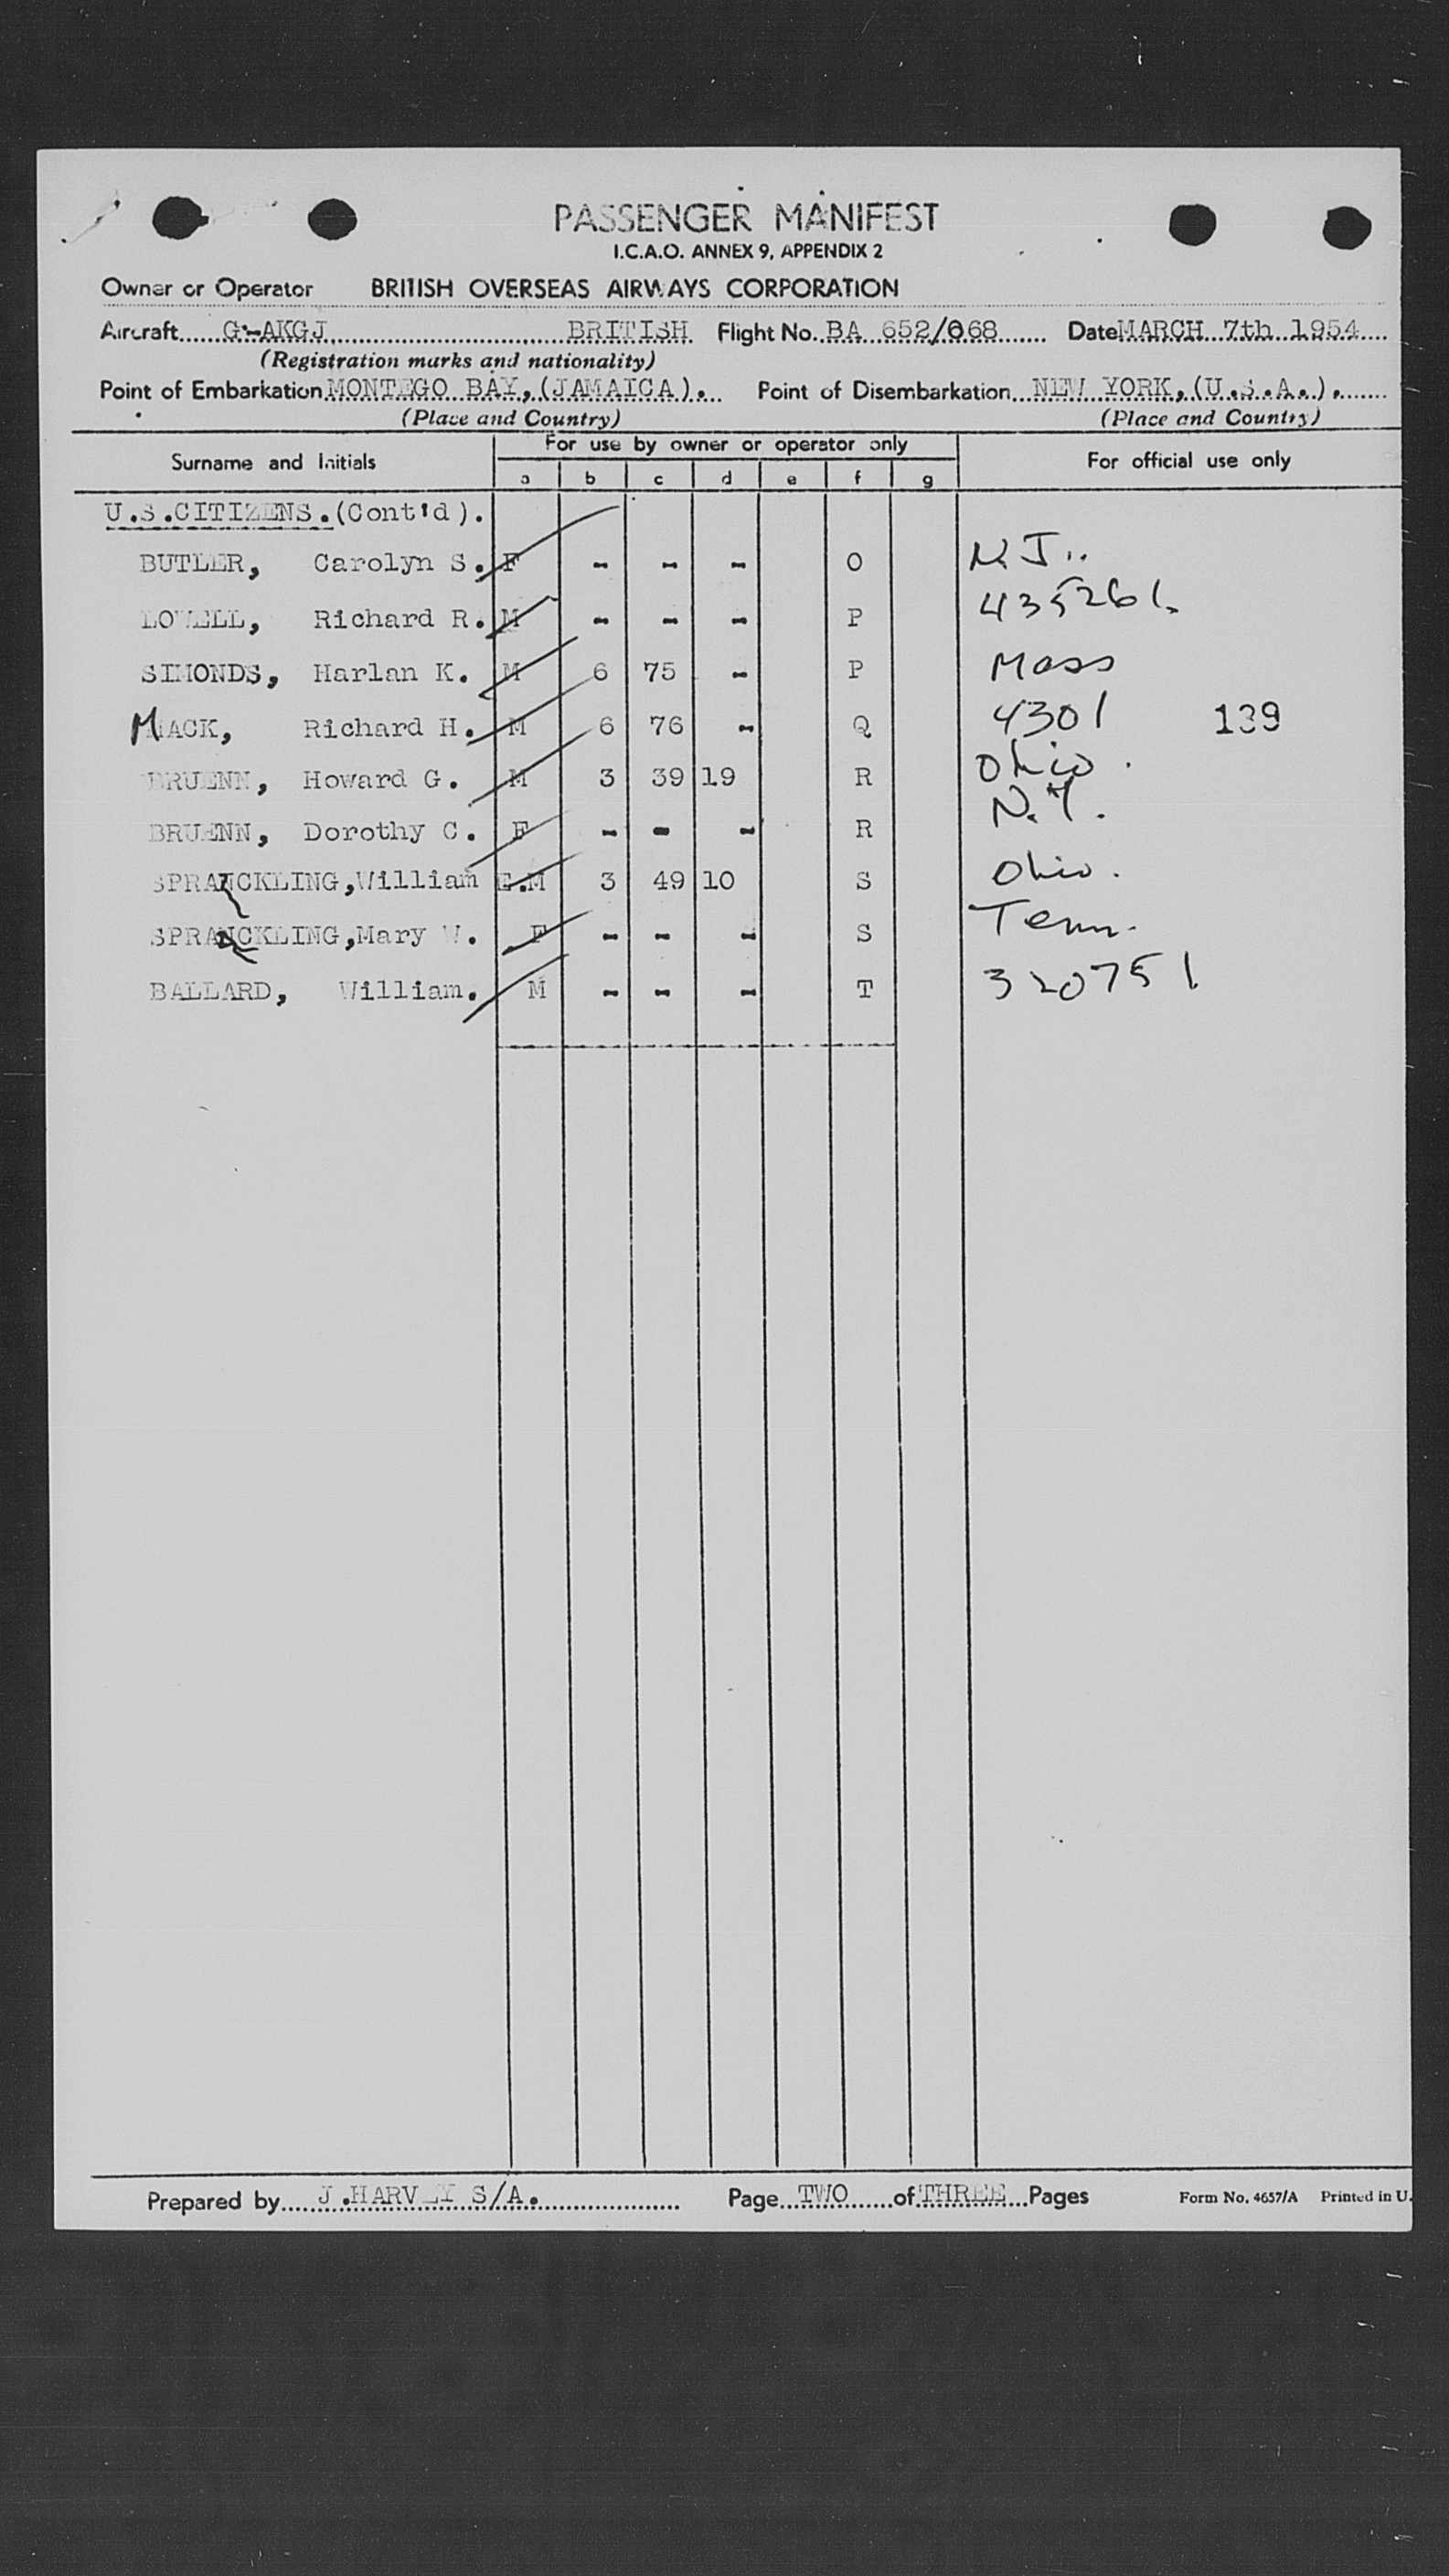 PASSENGER MANIFEST
I.C.A.O. ANNEX 9, APPENDIX 2
Owner or Operator BRITISH OVERSEAS AIRWAYS CORPORATION
Aircraft G-AKGJ BRITISH Flight No. BA 652/068 Date MARCH 7th 1954
(Registration marks and nationality)
Point of Embarkation MONTEGO BAY, (JAMAICA). Point of Disembarkation NEW YORK, (U.S.A.).
(Place and Country) (Place and Country)
For use by owner or operator only
Surname and Initials For official use only
a b c d e f g
U.S.CITIZENS.(Cont'd).
BUTLER, Carolyn S. F - - - O N.J.
LOWELL, Richard R. M - - - P 435261
SIMONDS, Harlan K. M 6 75 - P Mass
MACK, Richard H. M 6 76 - Q 4301 139
BRUENN, Howard G. M 3 39 19 R Ohio.
BRUENN, Dorothy C. F - - - R N.Y.
SPRACKLING, William E. M 3 49 10 S Ohio.
SPRACKLING, Mary W. F - - - S Tenn.
BALLARD, William. M - - - T 320751
Prepared by J.HARVEY S/A. Page TWO of THREE Pages Form No. 4657/A Printed in U.